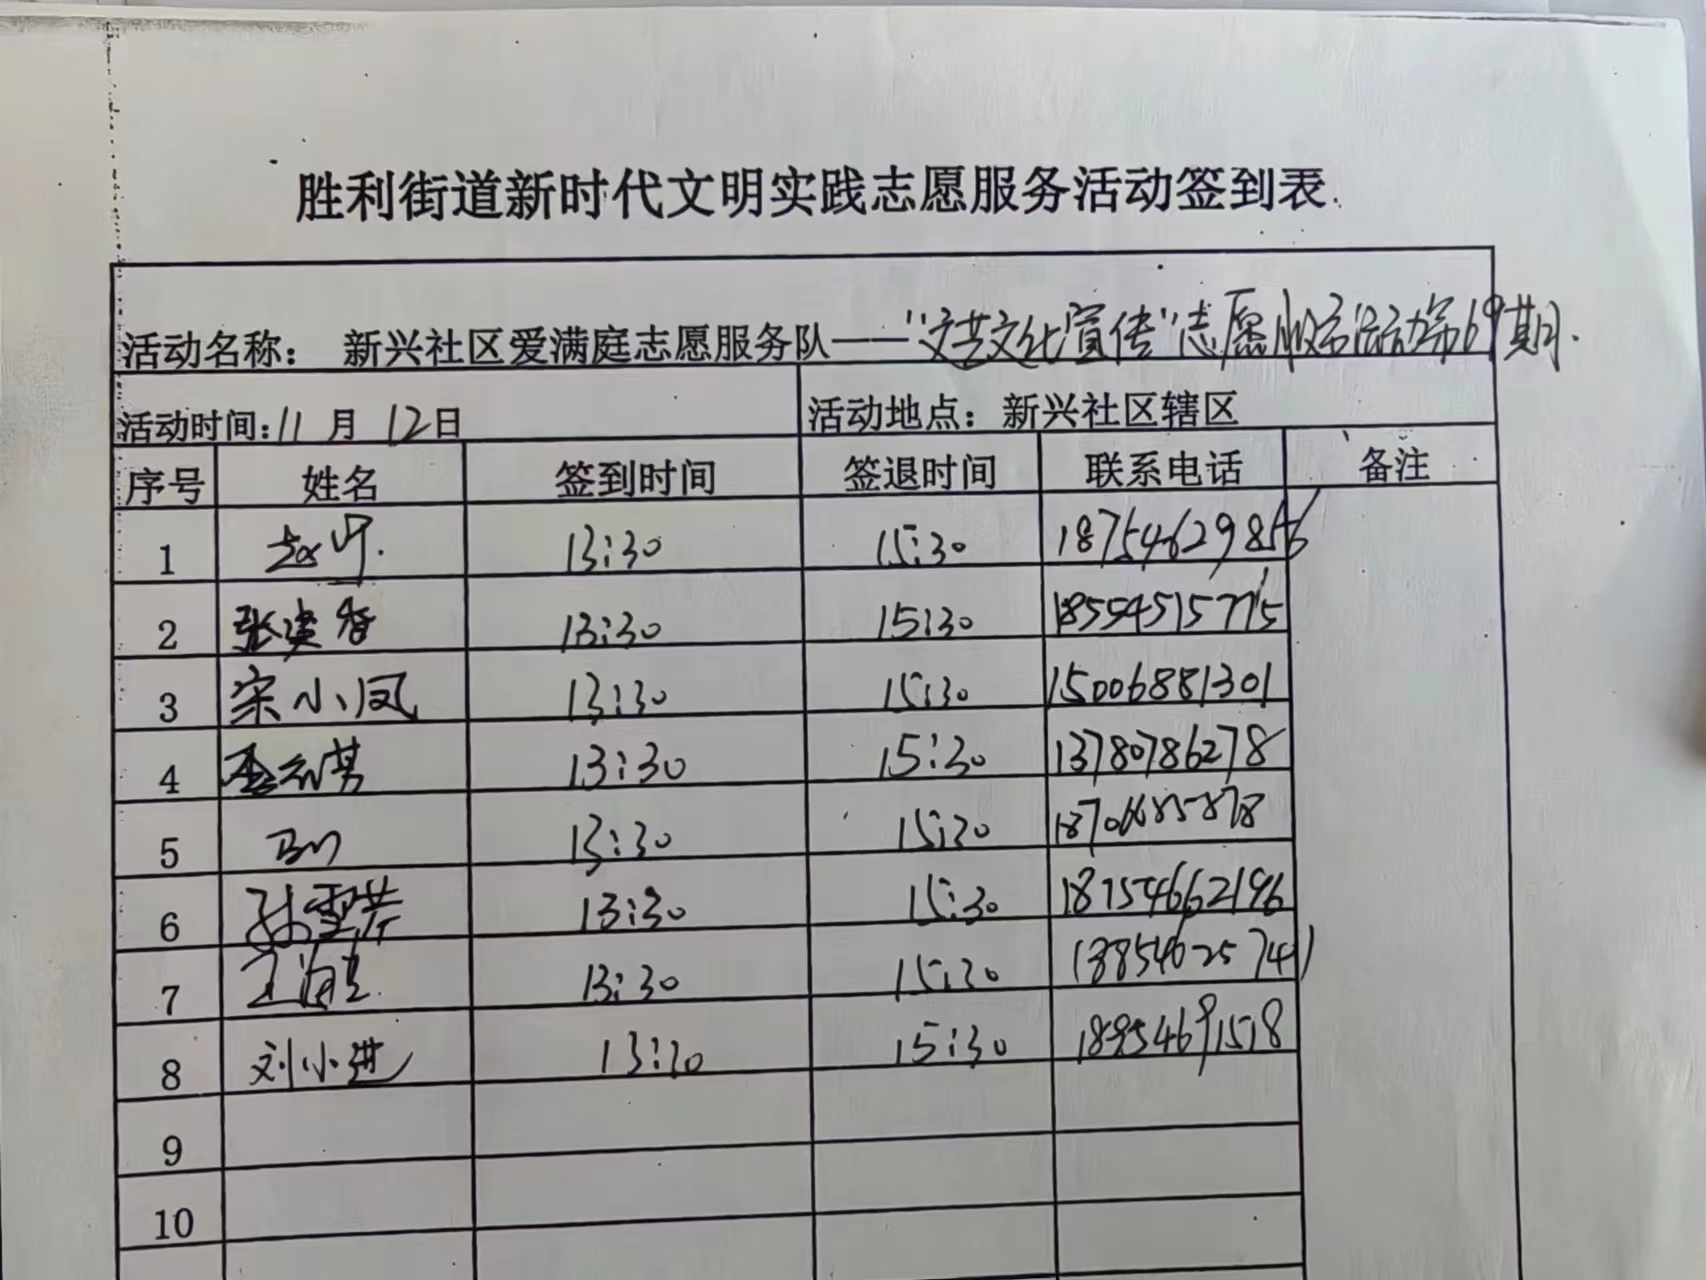 胜利街道新时代文明实践志愿服务活动签到表
活动名称： 新兴社区爱满庭志愿服务队——“文艺文化宣传”志愿服务活动第69期.
活动时间：11月 12日 活动地点：新兴社区辖区
序号 姓名 签到时间 签退时间 联系电话 备注
1 13:30 15:30 18754629856
2 张建香 13:30 15:30 18554515775
3 宋小凤 13:30 15:30 15006881301
4 13:30 15:30 13780786278
5 13:30 15:30
6 孙雪芹 13:30 15:30 18754662196
7 13:30 15:30 13854625741
8 刘小进 13:30 15:30 18954691518
9
10